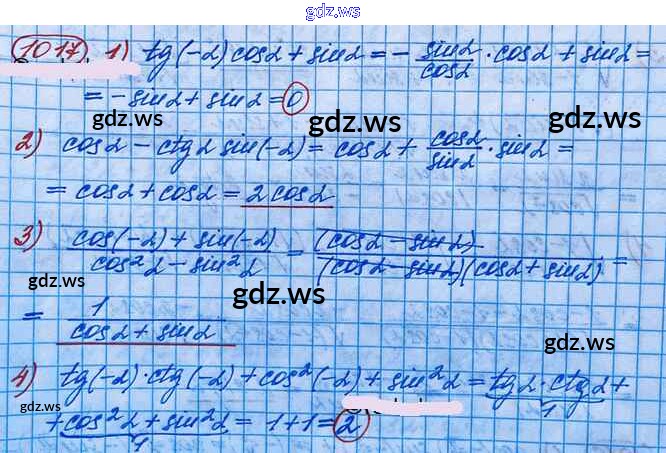 gdz.ws
1017 1) tg(-α) cosα + sinα = - sinα/cosα · cosα + sinα =
= - sinα + sinα = 0
gdz.ws
gdz.ws
gdz.ws
2) cosα - ctgα sin(-α) = cosα + cosα/sinα · sinα =
= cosα + cosα = 2cosα
3) cos(-α) + sin(-α)/cos²α - sin²α = (cosα - sinα)/(cosα - sinα)(cosα + sinα) =
gdz.ws
gdz.ws
= 1/cosα + sinα
gdz.ws
4) tg(-α) · ctg(-α) + cos²(-α) + sin²α = tgα · ctgα +
1
+ cos²α + sin²α = 1 + 1 = 2
1
gdz.ws
gdz.ws